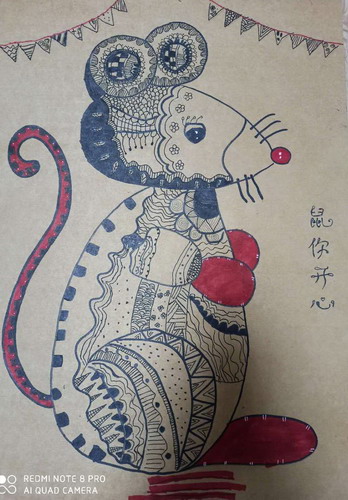 鼠
你
开
心
REDMI NOTE 8 PRO
AI QUAD CAMERA